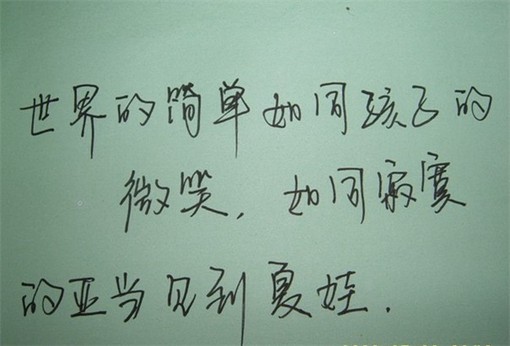 世界的简单如同孩子的
微笑，如同寂寞
的亚当见到夏娃.